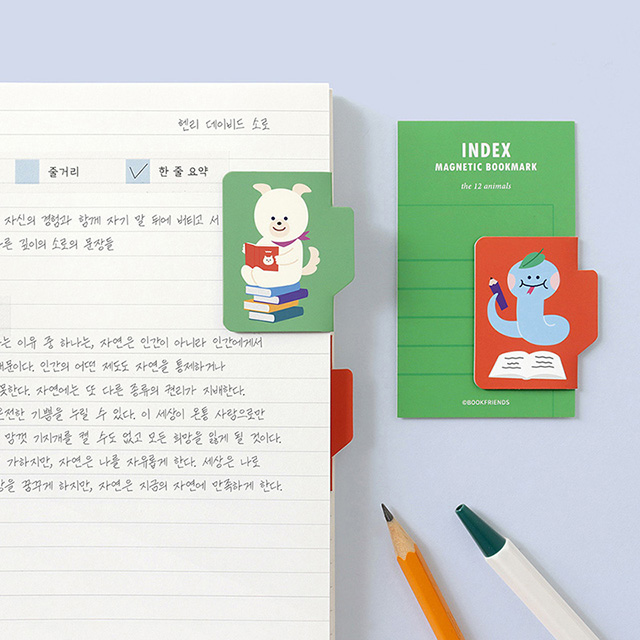 헨리 데이비드 소로
줄거리
한 줄 요약
자신의 경험과 함께 자기 말 뒤에 버티고 서
른 깊이의 소로의 문장들
는 이유 중 하나는, 자연은 인간이 아니라 인간에게서
때문이다. 인간의 어떤 제도도 자연을 통제하거나
못한다. 자연에는 또 다른 종류의 권리가 지배한다.
온전한 기쁨을 누릴 수 있다. 이 세상이 온통 사람으로만
망껏 기지개를 켤 수도 없고 모든 희망을 잃게 될 것이다.
가하지만, 자연은 나를 자유롭게 한다. 세상은 나로
을 꿈꾸게 하지만, 자연은 지금의 자연에 만족하게 한다.
INDEX
MAGNETIC BOOKMARK
the 12 animals
©BOOKFRIENDS